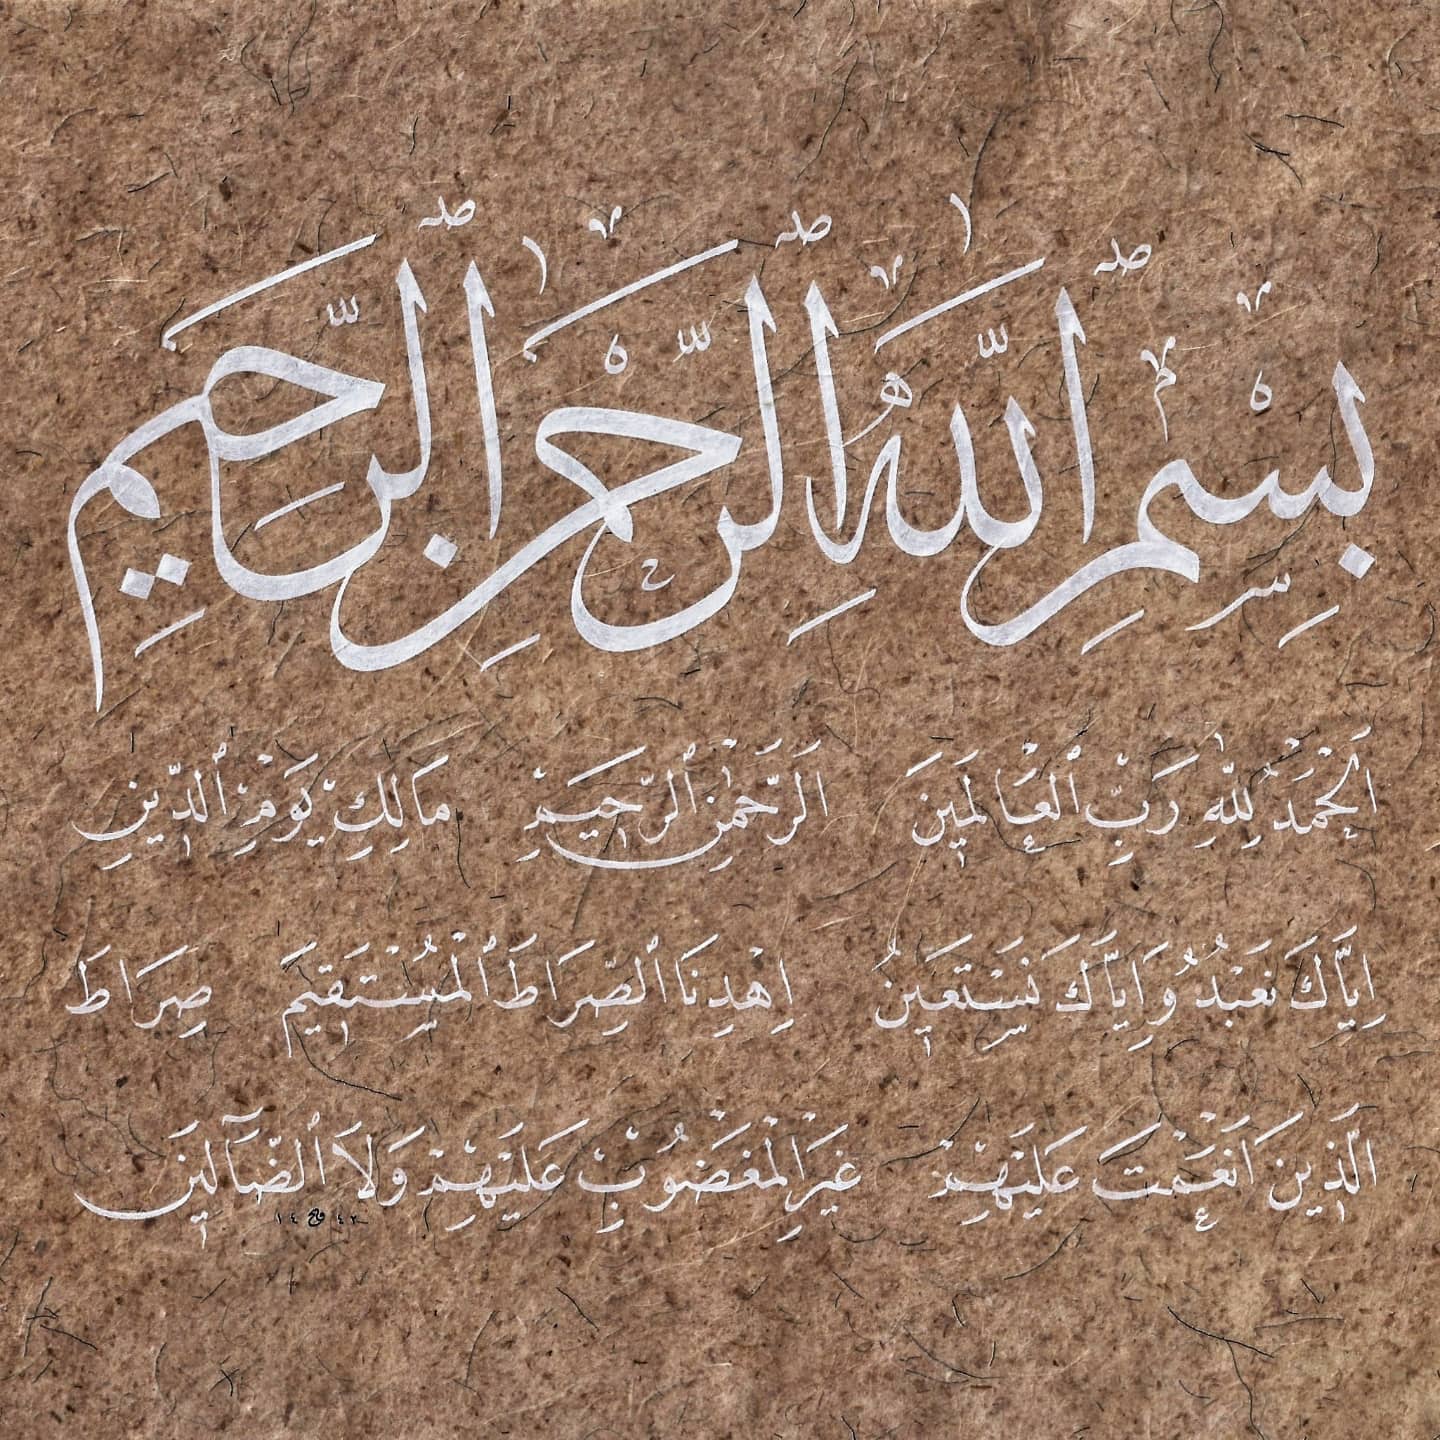 بِسْمِ اللّٰهِ الرَّحْمٰنِ الرَّحِيمِ
اَلْحَمْدُ لِلّٰهِ رَبِّ ٱلْعَالَمِينَ اَلرَّحْمٰنِ ٱلرَّحِيمِ مَالِكِ يَوْمِ ٱلدِّينِ
اِيَّاكَ نَعْبُدُ وَاِيَّاكَ نَسْتَعِينُ اِهْدِنَا ٱلصِّرَاطَ ٱلْمُسْتَقِيمَ صِرَاطَ
الَّذِينَ اَنْعَمْتَ عَلَيْهِمْ غَيْرِ الْمَغْضُوبِ عَلَيْهِمْ وَلَا ٱلضَّآلِّينَ